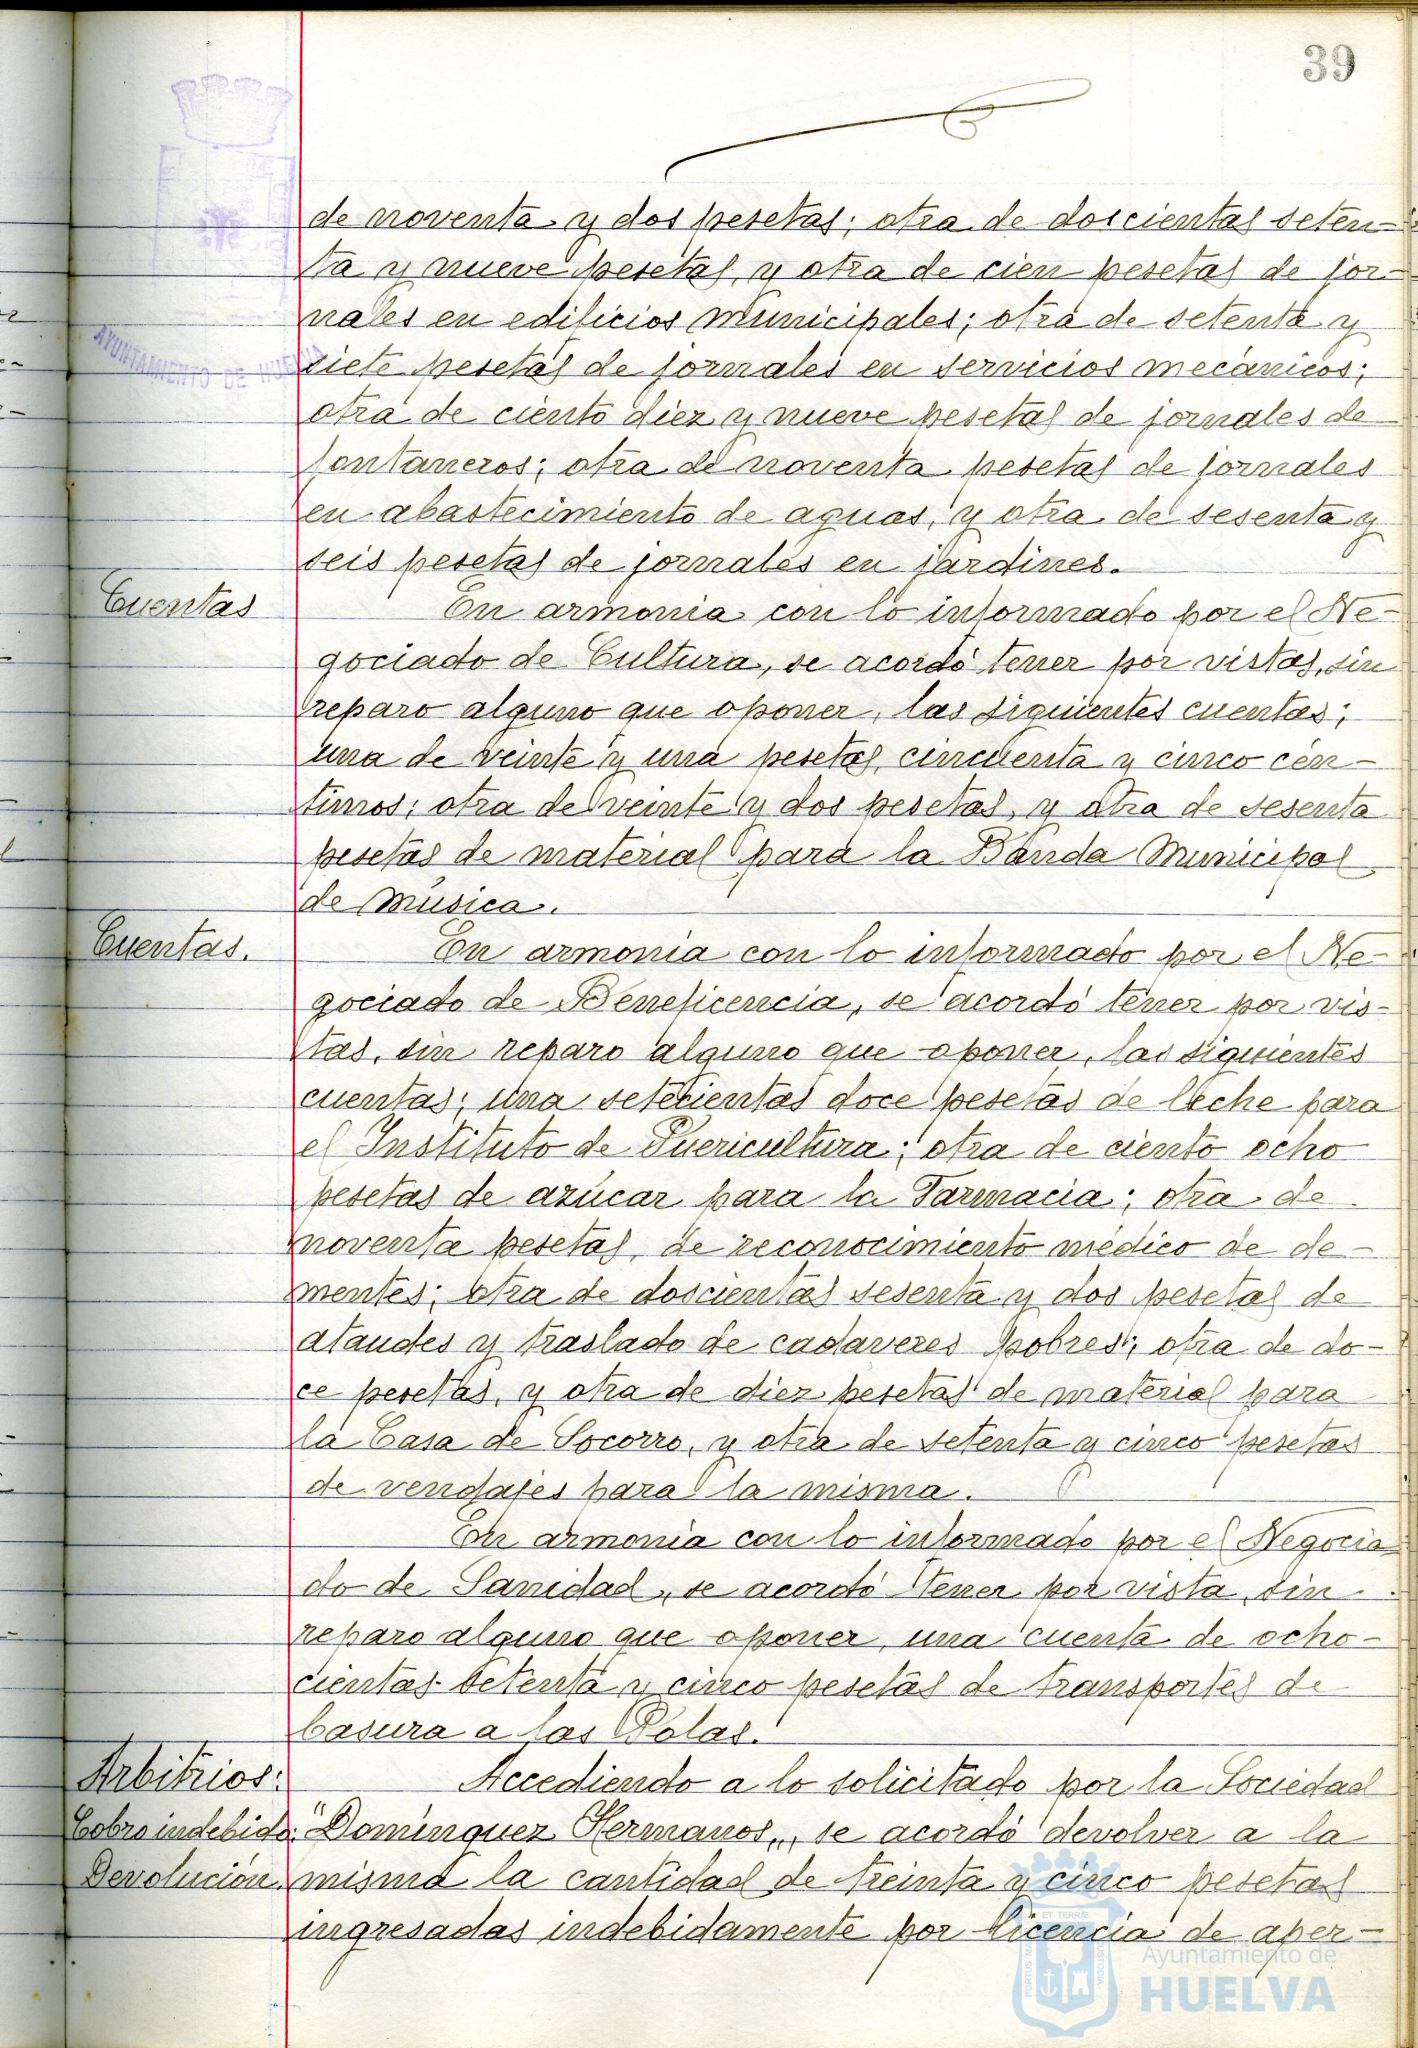 39
de noventa y dos pesetas; otra de doscientas seten-
ta y nueve pesetas, y otra de cien pesetas de jor-
nales en edificios municipales; otra de setenta y
siete pesetas de jornales en servicios mecánicos;
otra de ciento diez y nueve pesetas de jornales de
fontaneros; otra de noventa pesetas de jornales
en abastecimiento de aguas, y otra de sesenta y
seis pesetas de jornales en jardines.
Cuentas
En armonia con lo informado por el Ne-
gociado de Cultura, se acordó tener por vistas, sin
reparo alguno que oponer, las siguientes cuentas;
una de veinte y una pesetas, cincuenta y cinco cén-
timos; otra de veinte y dos pesetas, y otra de sesenta
pesetas de material para la Banda Municipal
de Música.
Cuentas.
En armonia con lo informado por el Ne-
gociado de Beneficencia, se acordó tener por vis-
tas, sin reparo alguno que oponer, las siguientes
cuentas; una setecientas doce pesetas de leche para
el Instituto de Puericultura; otra de ciento ocho
pesetas de azúcar para la Farmacia; otra de
noventa pesetas, de reconocimiento médico de de-
mentes; otra de doscientas sesenta y dos pesetas de
ataudes y traslado de cadaveres pobres; otra de do-
ce pesetas, y otra de diez pesetas de material para
la Casa de Socorro, y otra de setenta y cinco pesetas
de vendajes para la misma.
En armonia con lo informado por el Negocia
do de Sanidad, se acordó tener por vista, sin
reparo alguno que oponer, una cuenta de ocho-
cientas setenta y cinco pesetas de transportes de
basura a las Polas.
Arbitrios:
Cobro indebido.
Devolución.
Accediendo a lo solicitado por la Sociedad
"Dominguez Hermanos", se acordó devolver a la
misma la cantidad de treinta y cinco pesetas
ingresadas indebidamente por licencia de aper-
AYUNTAMIENTO DE HUELVA
Ayuntamiento de
HUELVA